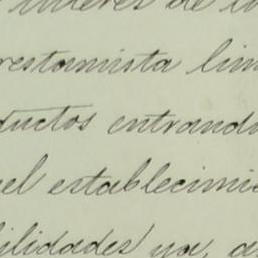 interes de l
restamista lim
ductos entrand
el establecimi
ilidades ya, a